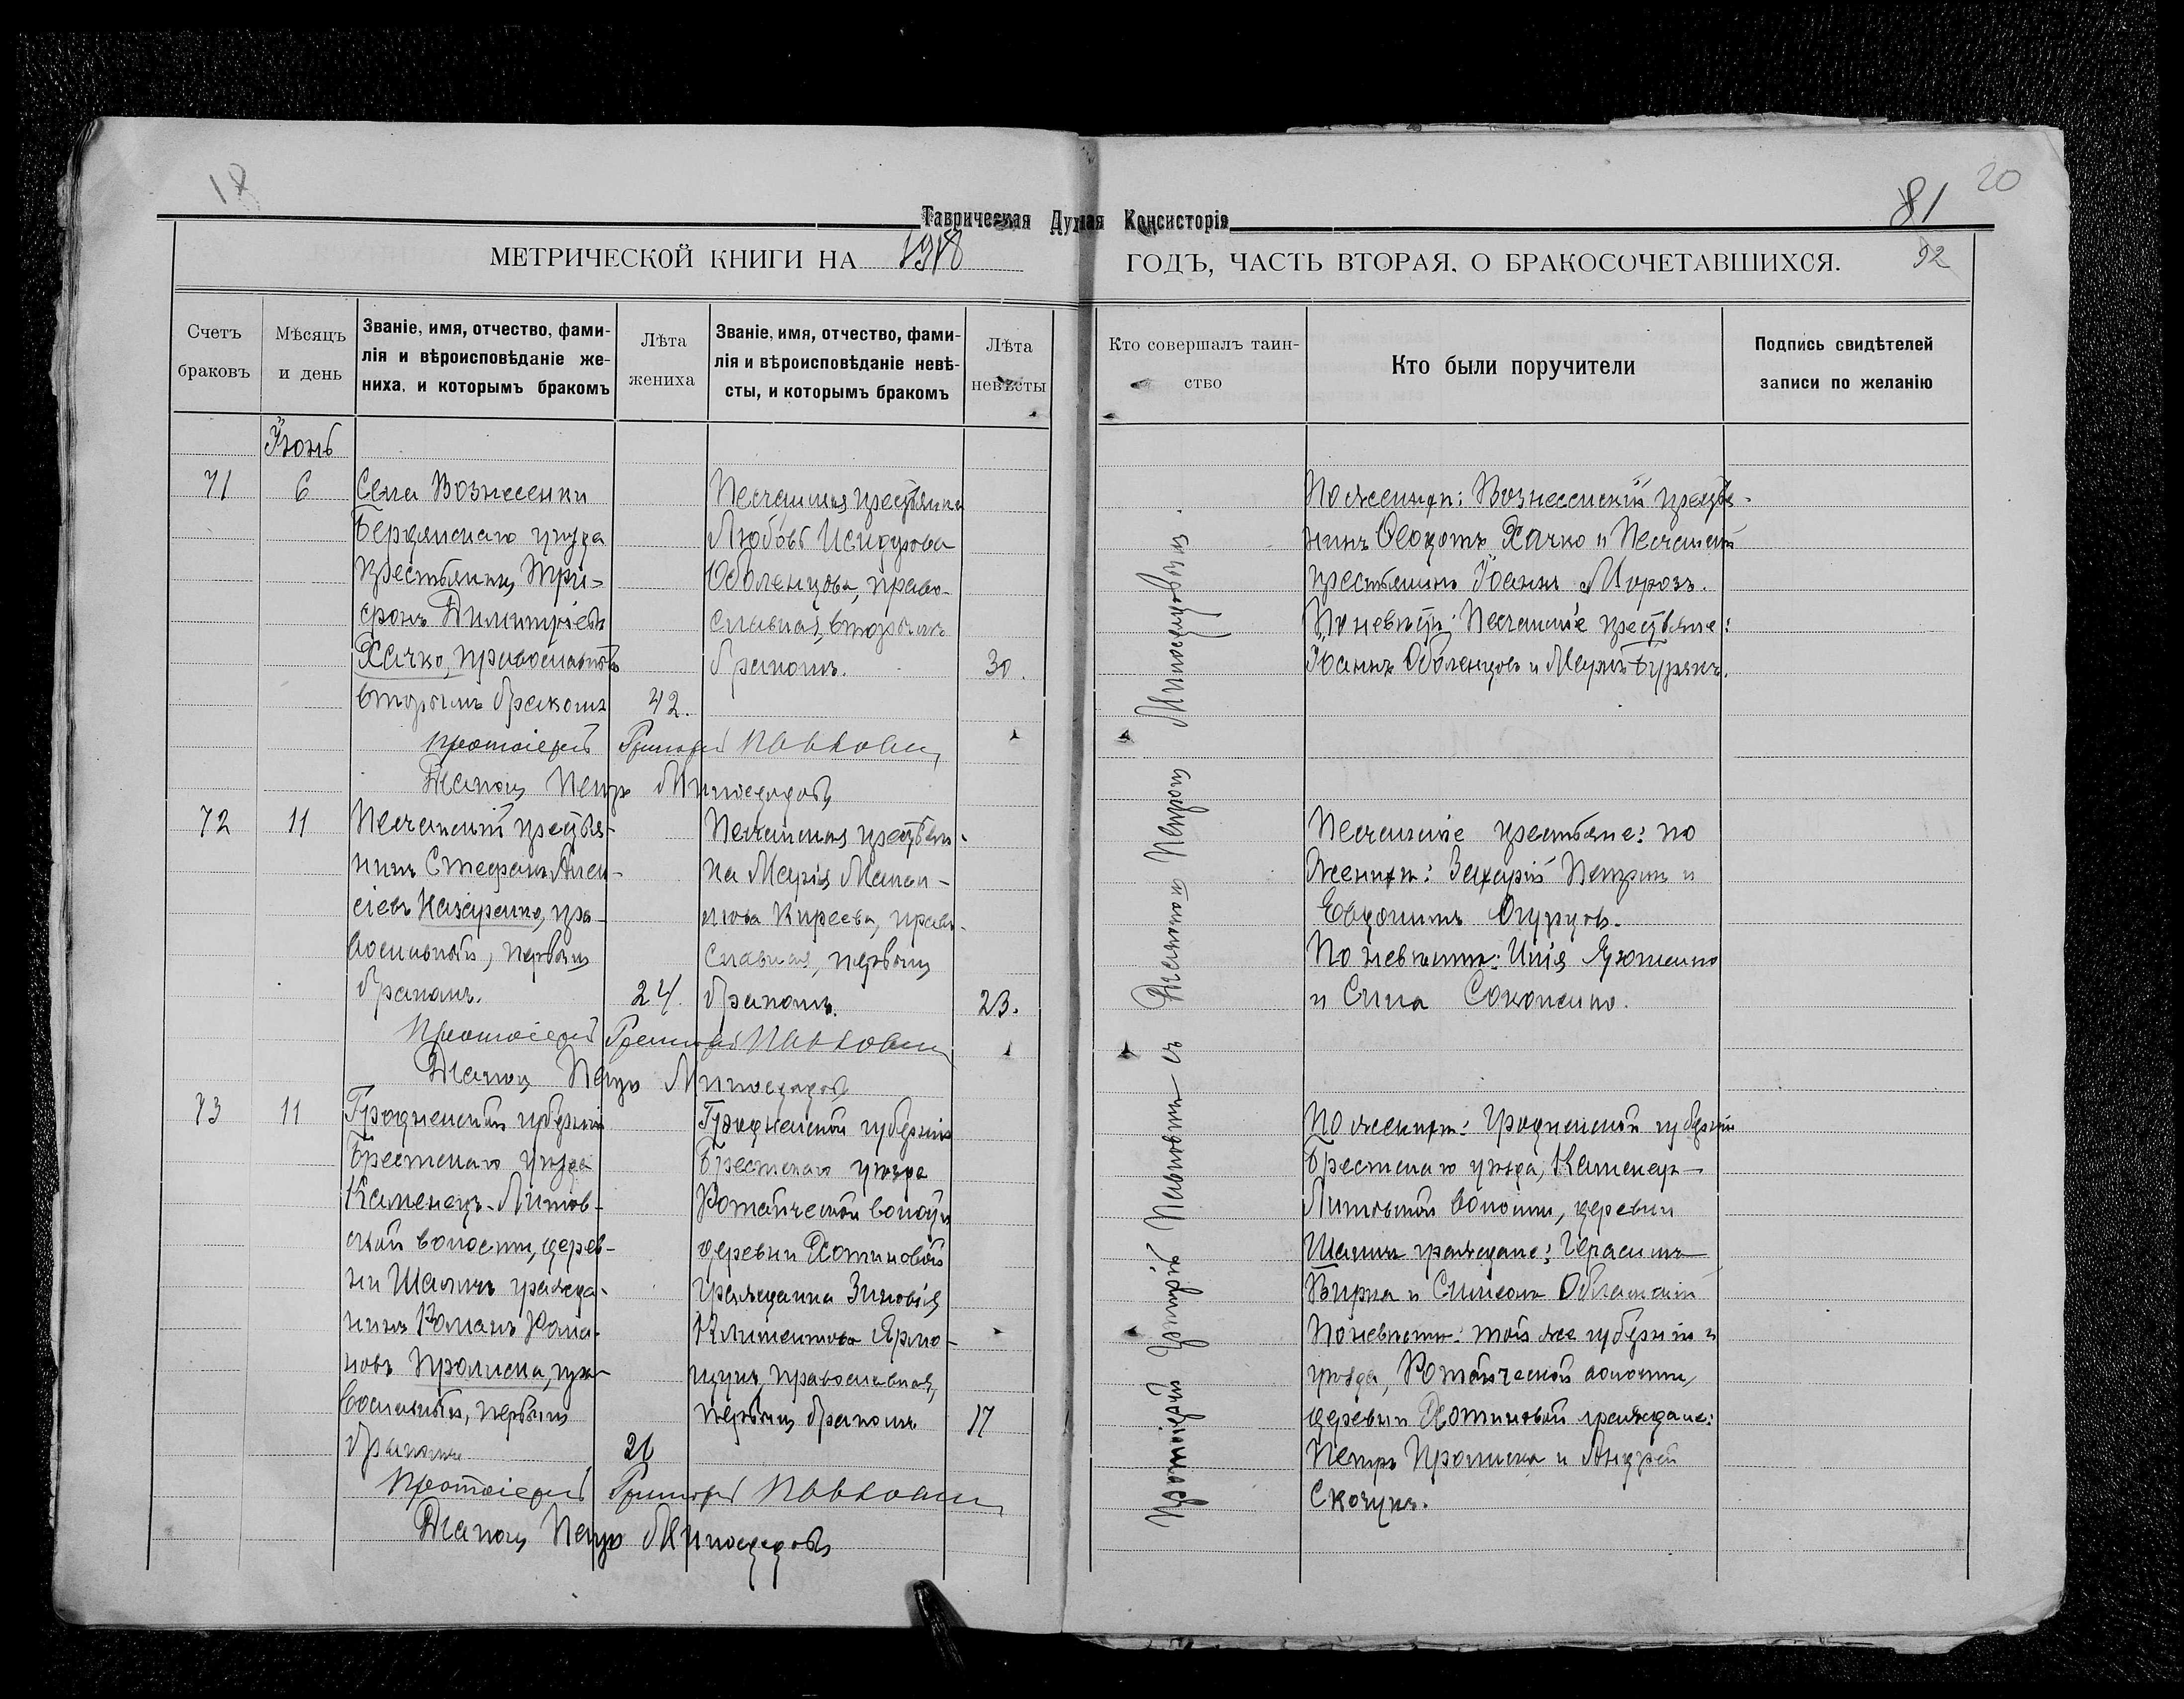 18
81
20
Таврическая Духная Консисторія
МЕТРИЧЕСКОЙ КНИГИ НА 1918
ГОДЪ, ЧАСТЬ ВТОРАЯ, О БРАКОСОЧЕТАВШИХСЯ.
92
Счетъ браковъ
Мѣсяцъ и день
Званіе, имя, отчество, фами-
лія и вѣроисповѣданіе же-
ниха, и которымъ бракомъ
Лѣта жениха
Званіе, имя, отчество, фами-
лія и вѣроисповѣданіе невѣ-
сты, и которымъ бракомъ
Лѣта невѣсты
Кто совершалъ таин-
ство
Кто были поручители
Подпись свидѣтелей
записи по желанію
Іюнь
71
6
Села Вознесенки
Бердянскаго уѣзда
крестьянинъ Три-
фонъ Димитріевъ
Хачко, православный
вторымъ бракомъ
42.
Песчанская крестьянка
Любовь Исидорова
Оболенцова, право-
славная, вторымъ
бракомъ.
30.
По женихѣ: Вознесенскій крестья-
нинъ Ѳеодотъ Хачко и Песчанскій
крестьянинъ Іоаннъ Морозъ.
По невѣстѣ: Песчанскіе крестьяне:
Іоаннъ Оболенцовъ и Маркъ Бурякъ.
Протоіерей Григорій Павловичъ
Діаконъ Петръ Милосердовъ
72
11
Песчанскій крестья-
нинъ Стефанъ Алек-
сіевъ Назаренко, пра-
вославный, первымъ
бракомъ.
24.
Песчанская крестьян-
ка Марія
Киреева, право-
славная, первымъ
бракомъ.
23.
Песчанскіе крестьяне: по
женихѣ: Захарій Петринъ и
Евдокимъ Огурцовъ.
По невѣстѣ: Илія
и Сила Соколенко.
Протоіерей Григорій Павловичъ
Діаконъ Петръ Милосердовъ
73
11
Гродненской губерніи
Брестскаго уѣзда
Каменецъ-Литов-
ской волости, дерев-
ни гражда-
нинъ Романъ Рома-
новъ Пролиска, пра-
вославный, первымъ
бракомъ
21
Гродненской губерніи
Брестскаго уѣзда
волости
деревни Хотиновой
гражданка Зиновія
Климентова
православная,
первымъ бракомъ
17
По женихѣ: Гродненской губерніи
Брестскаго уѣзда, Каменецъ-
Литовской волости, деревни
граждане: Герасимъ
Вирка и Симеонъ
По невѣстѣ: той же губерніи и
уѣзда, волости,
деревни Хотиновой граждане:
Петръ Пролиска и Андрей
Скокукъ.
Протоіерей Григорій Павловичъ
Діаконъ Петръ Милосердовъ
Протоіерей Григорій Павловичъ съ Діакономъ Петромъ Милосердовымъ.